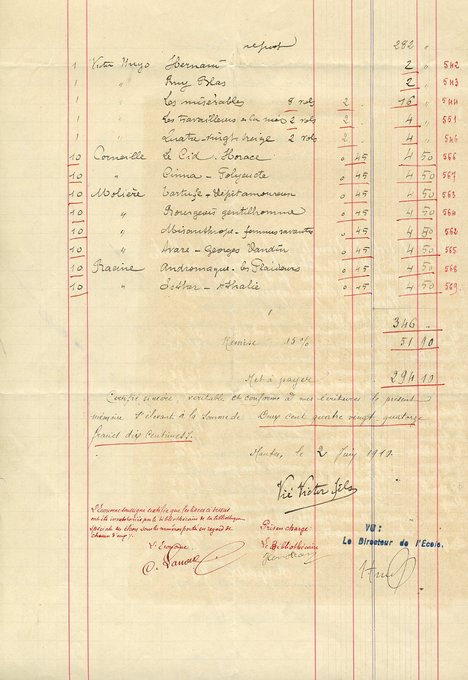 report 282 "
1 Victor Hugo Hernani 2 " 542
1 " Ruy Blas 2 " 543
1 " Les misérables 8 vols 2 " 16 " 544
1 " Les travailleurs de la mer 2 vols 2 " 4 " 551
1 " Quatre vingt treize 2 vols 2 " 4 " 546
10 Corneille Le Cid. Horace 0 45 4 50 566
10 " Cinna - Polyeucte 0 45 4 50 567
10 Molière Tartufe - Dépit amoureux 0 45 4 50 563
10 " Bourgeois gentilhomme 0 45 4 50 564
10 " Misanthrope - femmes savantes 0 45 4 50 562
10 " Avare - Georges Dandin 0 45 4 50 565
10 Racine Andromaque. les Plaideurs 0 45 4 50 568
10 " Esther - Athalie 0 45 4 50 569
346 "
Remise 15% 51 90
Net à payer 294 10
Certifié sincère, véritable et conforme à mes écritures le présent
mémoire s'élevant à la somme de Deux cent quatre vingt quatorze
francs dix centimes.
Nantes, le 2 Juin 1910.
Vié Victor fils
L'Econome soussigné certifie que les livres ci dessus
ont été par le bibliothécaire de la Bibliothèque
spéciale des élèves sous les numéros portés en regard de
chacun d'eux.
L'Econome
Pris en charge
Le Bibliothécaire
VU:
Le Directeur de l'Ecole.